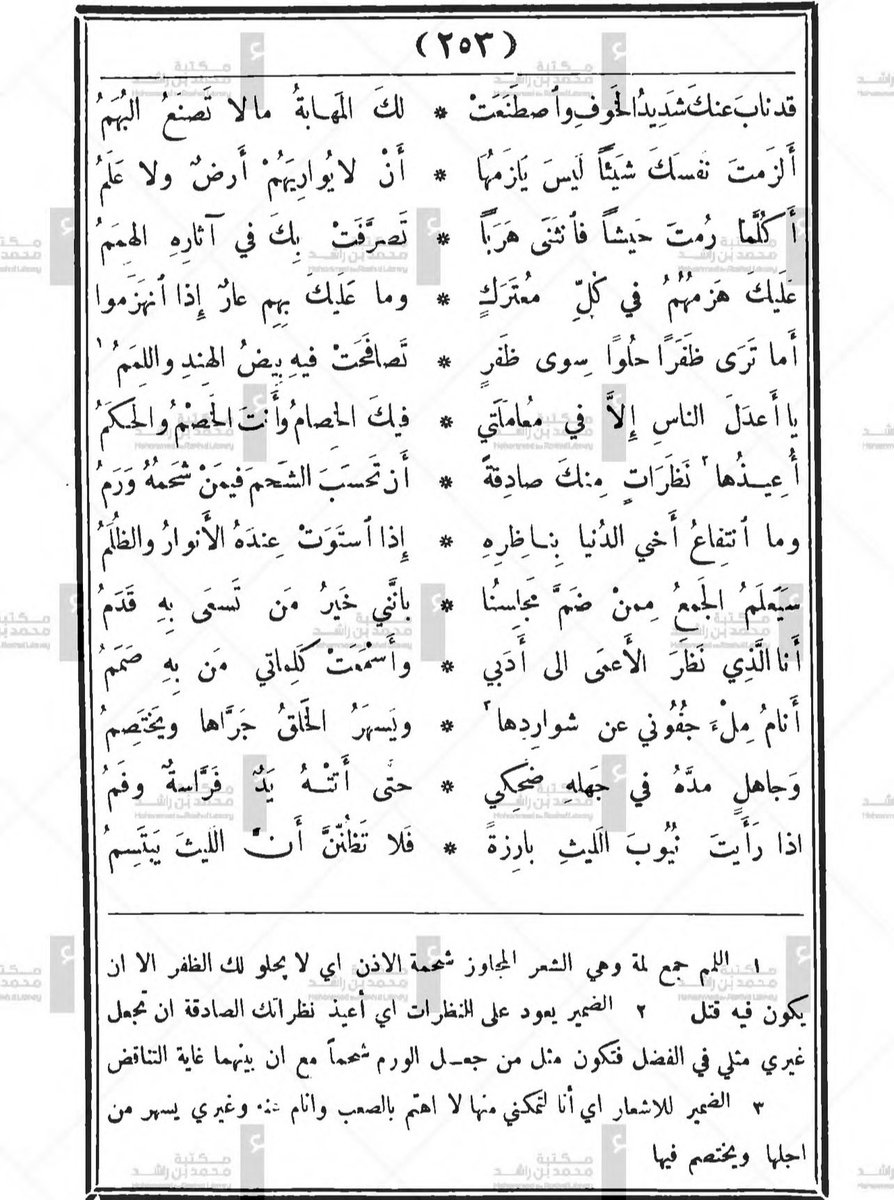 (٢٥٣)
قد نابَ عنكَ شَدِيدُ الخَوفِ وٱصطَنَعَتْ * لكَ المَهابةُ ما لا تَصنَعُ البُهَمُ
أَلزَمتَ نَفسَكَ شَيئًا لَيسَ يَلزَمُها * أَنْ لا يُوارِيَهُمْ أَرضٌ ولا عَلَمُ
أَكُلَّما رُمتَ جَيشًا فٱنثَنَى هَرَبًا * تَصرَّفَتْ بِكَ في آثارِهِ الهِمَمُ
عَلَيكَ هَزمُهُمُ في كُلِّ مُعتَرَكٍ * وما عَلَيكَ بِهِم عارٌ إِذا ٱنهَزَموا
أَما تَرَى ظَفَرًا حُلوًا سِوى ظَفَرٍ * تَصافَحَتْ فيهِ بِيضُ الهِندِ واللِمَمُ ١
يا أَعدَلَ الناسِ إِلاَّ في مُعامَلَتي * فيكَ الخِصامُ وأَنتَ الخَصْمُ والحَكَمُ
أُعِيذُها ٢ نَظَراتٍ مِنكَ صادِقةً * أَن تَحسَبَ الشَحمَ فيمَنْ شَحمُهُ وَرَمُ
وما ٱنتِفاعُ أَخي الدُنيا بِناظِرِهِ * إِذا ٱستَوَتْ عِندَهُ الأَنوارُ والظُلَمُ
سَيَعلَمُ الجَمعُ مِمنْ ضَمَّ مَجلِسُنا * بانَّني خَيرُ مَن تَسعَى بِهِ قَدَمُ
أَنا الَّذِي نَظَرَ الأَعمَى الى أَدَبي * وأَسْمَعَتْ كَلِماتي مَن بِهِ صَمَمُ
أَنامُ مِلْءَ جُفُوني عن شوارِدِها ٣ * ويَسهَرُ الخَلقُ جَرَّاها ويَختَصِمُ
وَجاهلٍ مدَّهُ في جَهلهِ ضَحِكي * حتَّى أَتَتْهُ يَدٌ فَرَّاسةٌ وفَمُ
اذا رَأَيتَ نُيُوبَ اللَيثِ بارِزةً * فَلا تَظُنَّنَّ أَنَّ اللَيثَ يَبتَسِمُ
١ اللمم جمع لمة وهي الشعر المجاوز شحمة الاذن اي لا يحلو لك الظفر الا ان
يكون فيه قتل ٢ الضمير يعود على النظرات اي أعيذ نظراتك الصادقة ان تجعل
غيري مثلي في الفضل فتكون مثل من جعل الورم شحماً مع ان بينهما غاية التناقض
٣ الضمير للاشعار اي أنا لتمكني منها لا اهتم بالصعب وانام عنه وغيري يسهر من
اجلها ويختصم فيها